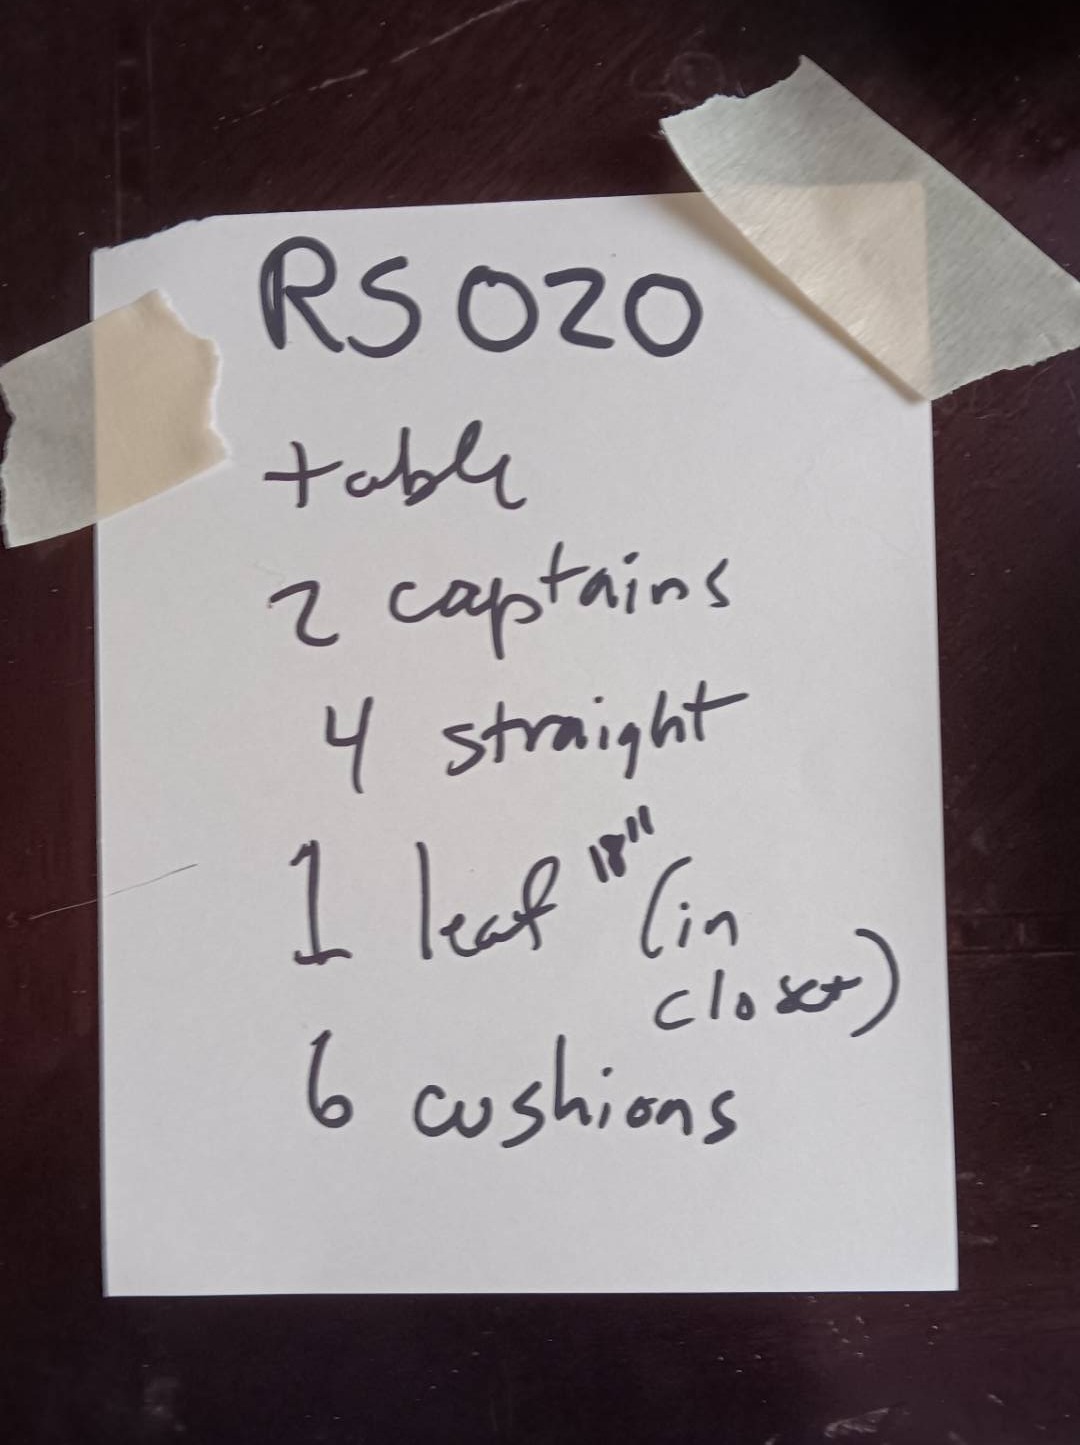 RS020
table
2 captains
4 straight
1 leaf 18" (in
closet)
6 cushions